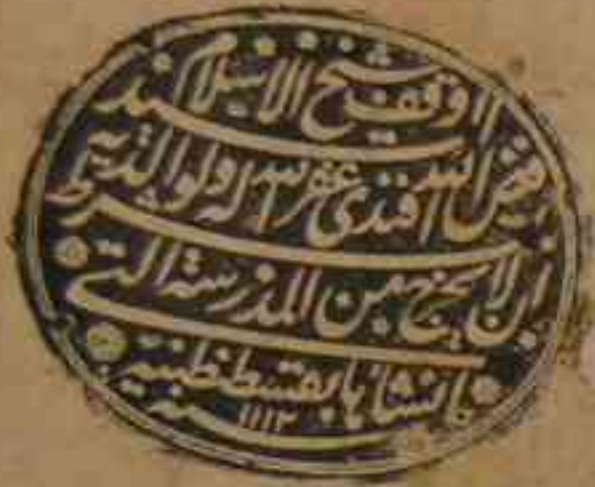 اوقفه شيخ الاسلام السيد
فيض الله افندى غفر الله له ولوالديه بشرط
ان لا يخرج من المدرسة التى
انشاها بقسطنطينية
سنة ١١١٢